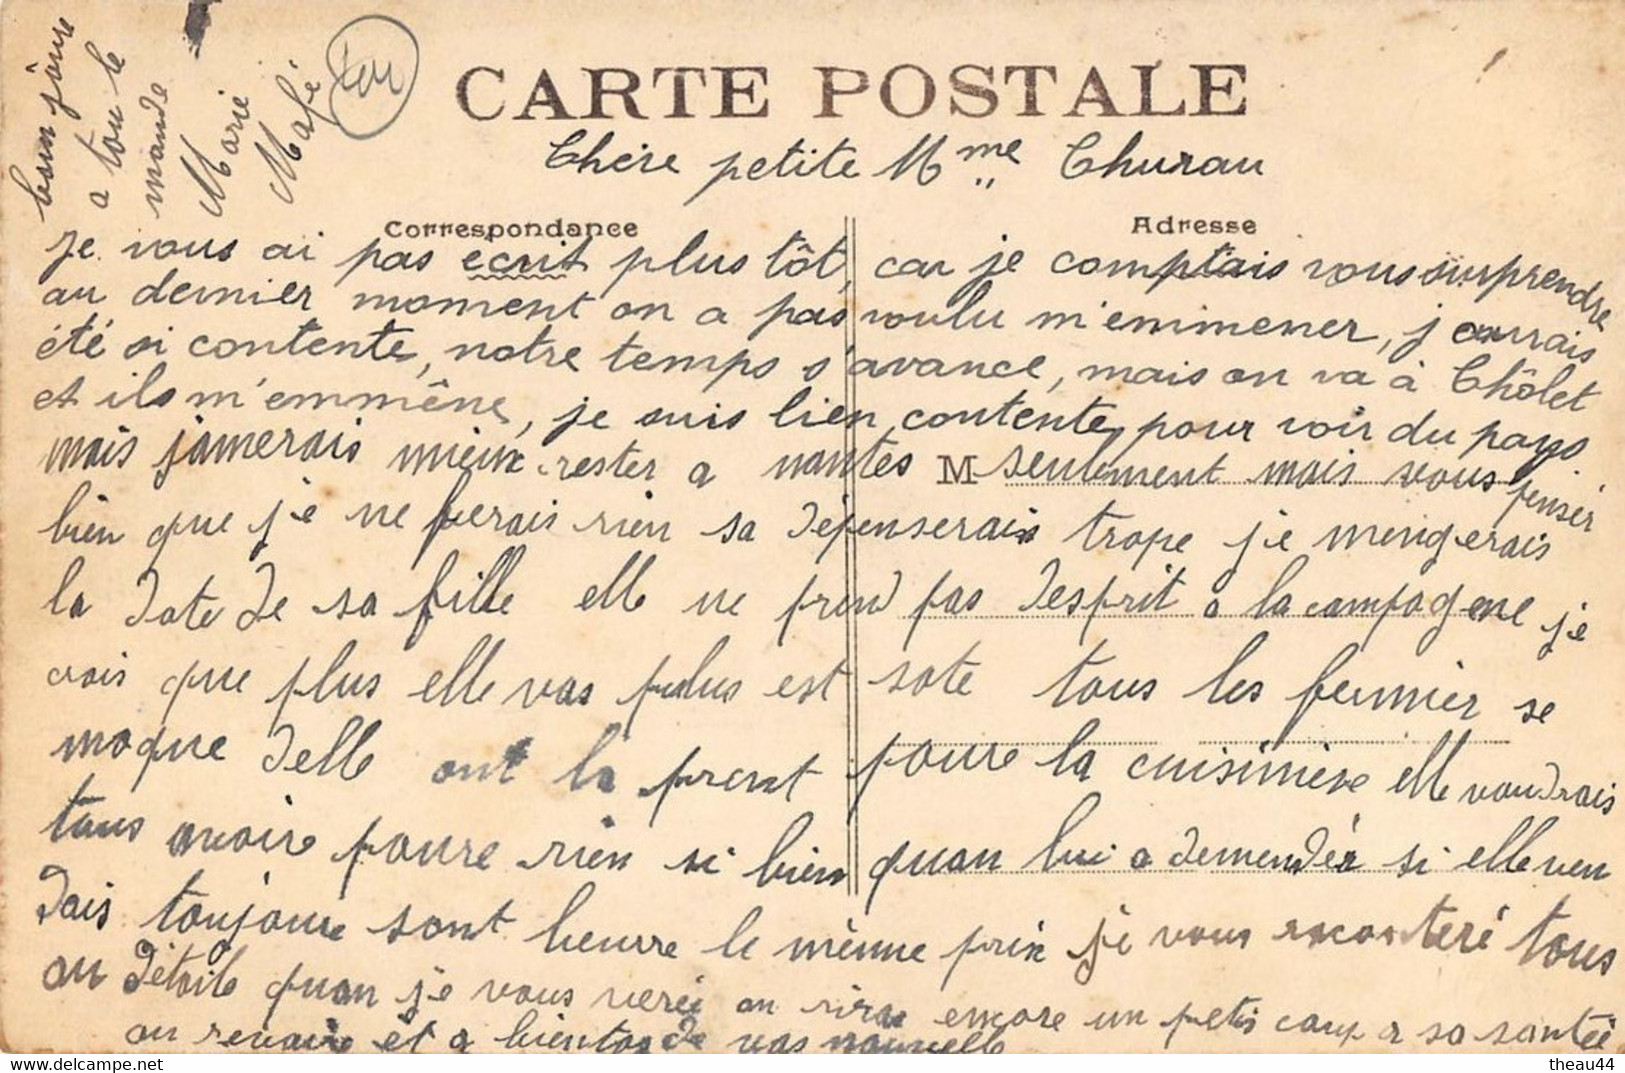 bonn joure
a tou le
monde
Marie
Malé
CARTE POSTALE
Chère petite Mme Thurau
Correspondance
Adresse
je vous ai pas ecrit plus tôt, car je comptais vous surprendre
au dernier moment on a pas voulu m'emmener, j'aurais
été si contente, notre temps s'avance, mais on va à Chôlet
et ils m'emmêne, je suis bien contente pour voir du pays
mais jamerais mieux rester a nantes M seulement mais vous penser
bien que je ne ferais rien sa dépenserais trope je mengerais
la dote de sa fille elle ne prend pas desprit a la campagene je
crois que plus elle vas plus est sote tous les fermier se
moque delle ont la prent poure la cuisinière elle voudrais
tous avoire poure rien si bien quan lui a demender si elle ven
dais toujoure sont beurre le mènne prix je vous raconteré tous
au détaile quan je vous veré on rira encore un petis coup a sa santée
au revoire et a bientau de vos nouvelle
theau44